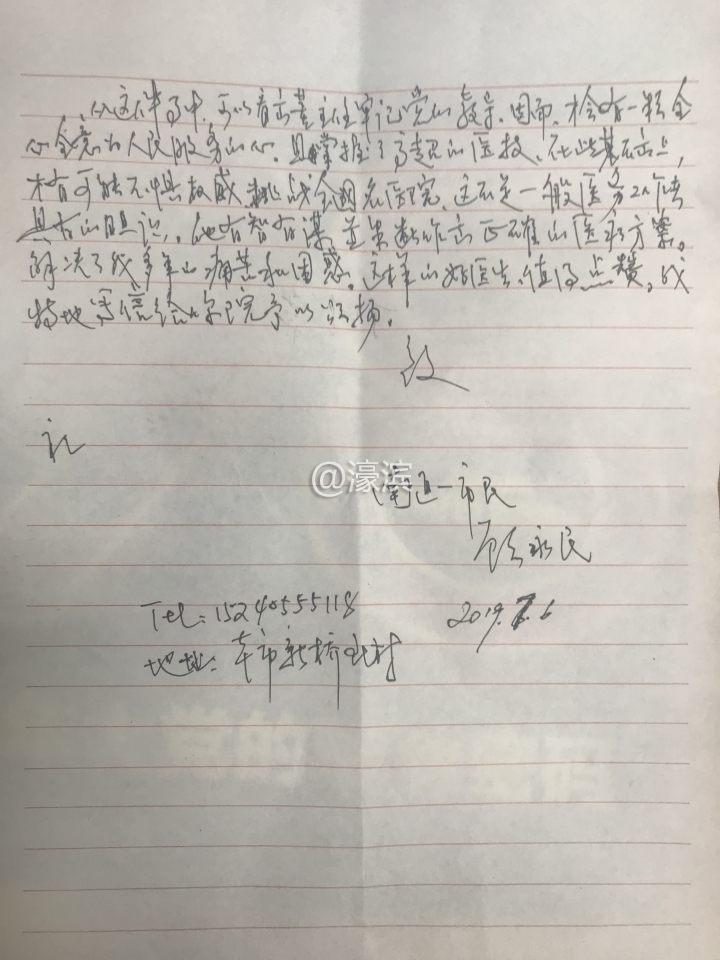 从这件事中，可以看出董主任牢记党的教导，因而，才会有一颗全
心全意为人民服务的心，且掌握了高超的医技，在此基础上，
才有可能不惧权威挑战全国名医院，这不是一般医务工作者
具有的胆识，他有智有谋，并果断作出正确的医疗方案。
解决了我多年的痛苦和困惑。这样的好医生，值得点赞，我
特地写信给贵院予以颂扬。
致
礼
@濠滨
南通一市民
顾永民
Tel：15240555118
2019.7.6
地址：本市新桥北村